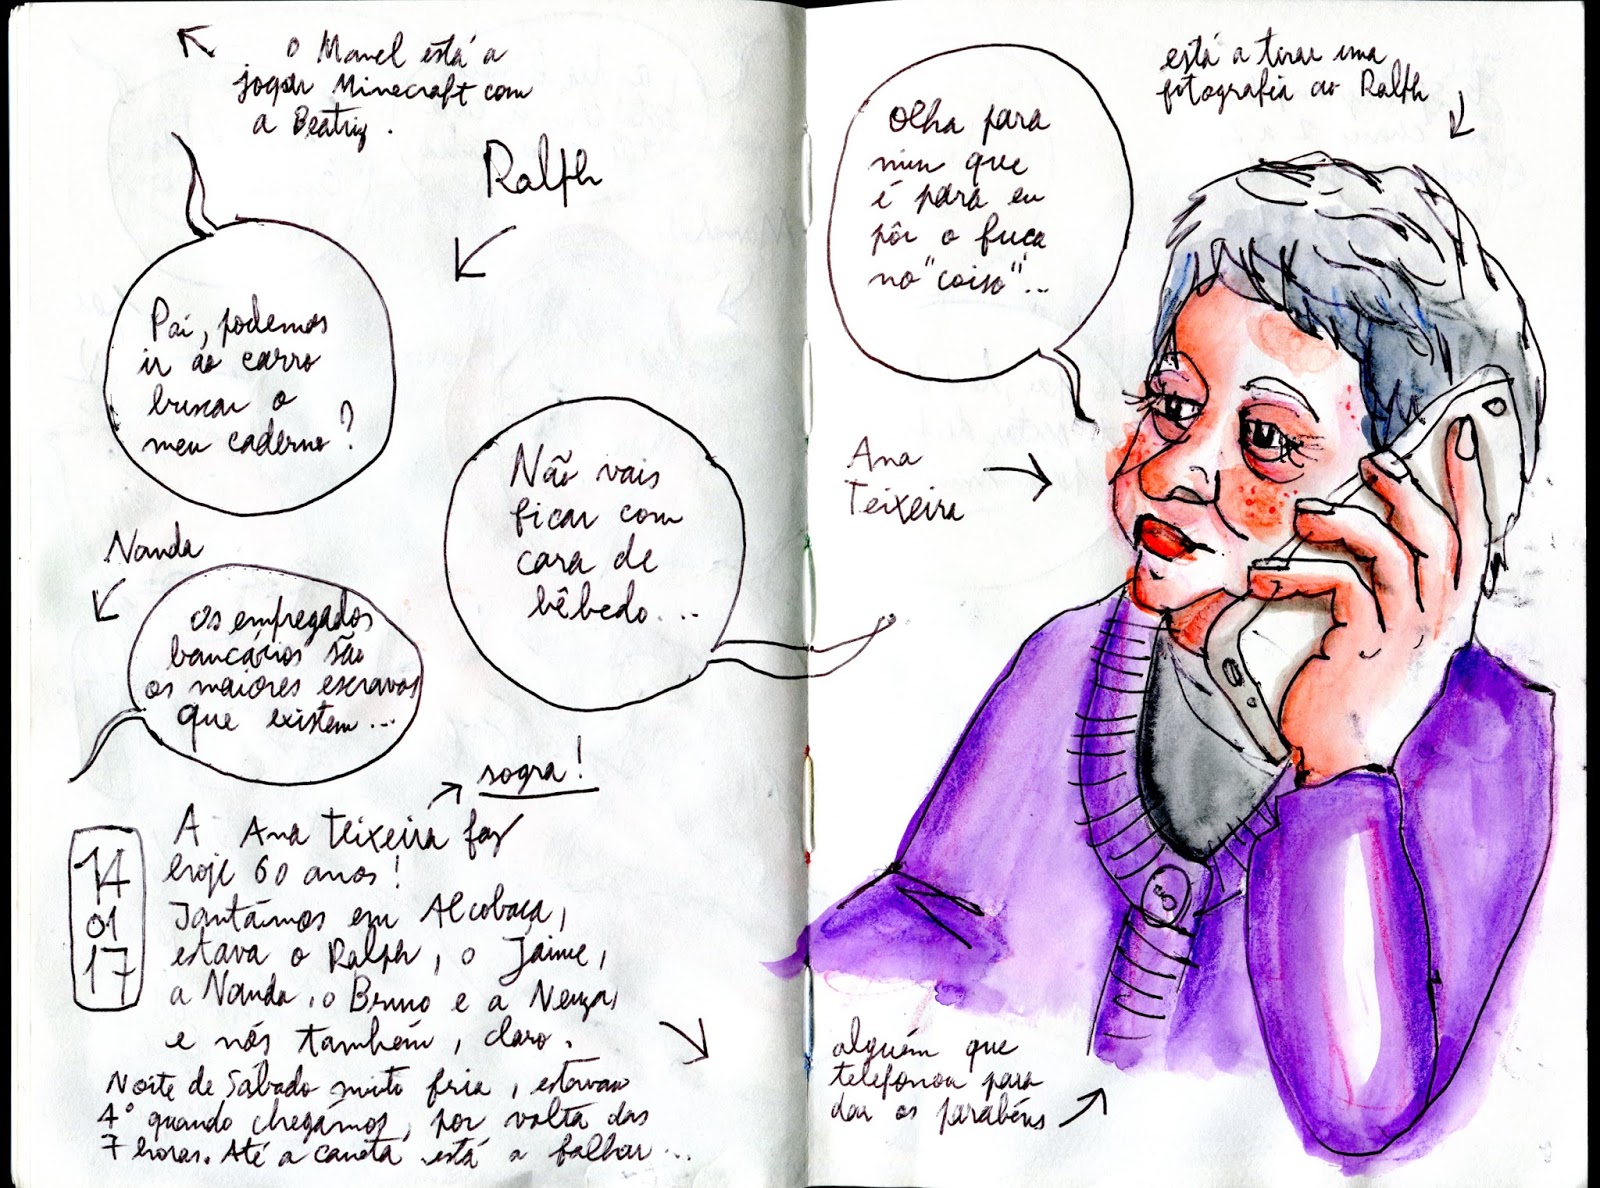 o Manel está a
jogar Minecraft com
a Beatriz.
Ralph
Pai, podemos
ir ao carro
buscar o
meu caderno?
Não vais
ficar com
cara de
bêbedo...
Nanda
Os empregados
bancários são
os maiores escravos
que existem...
sogra!
A Ana Teixeira faz
hoje 60 anos!
Jantámos em Alcobaça,
estava o Ralph, o Jaime,
a Nanda, o Bruno e a Neuza,
e nós também, claro.
Noite de Sábado muito fria, estavam
4° quando chegámos, por volta das
7 horas. Até a caneta está a falhar...
14
01
17
está a tirar uma
fotografia ao Ralph
Olha para
mim que
é para eu
pôr o fuça
no "coiso"...
Ana
Teixeira
alguém que
telefonou para
dar os parabéns